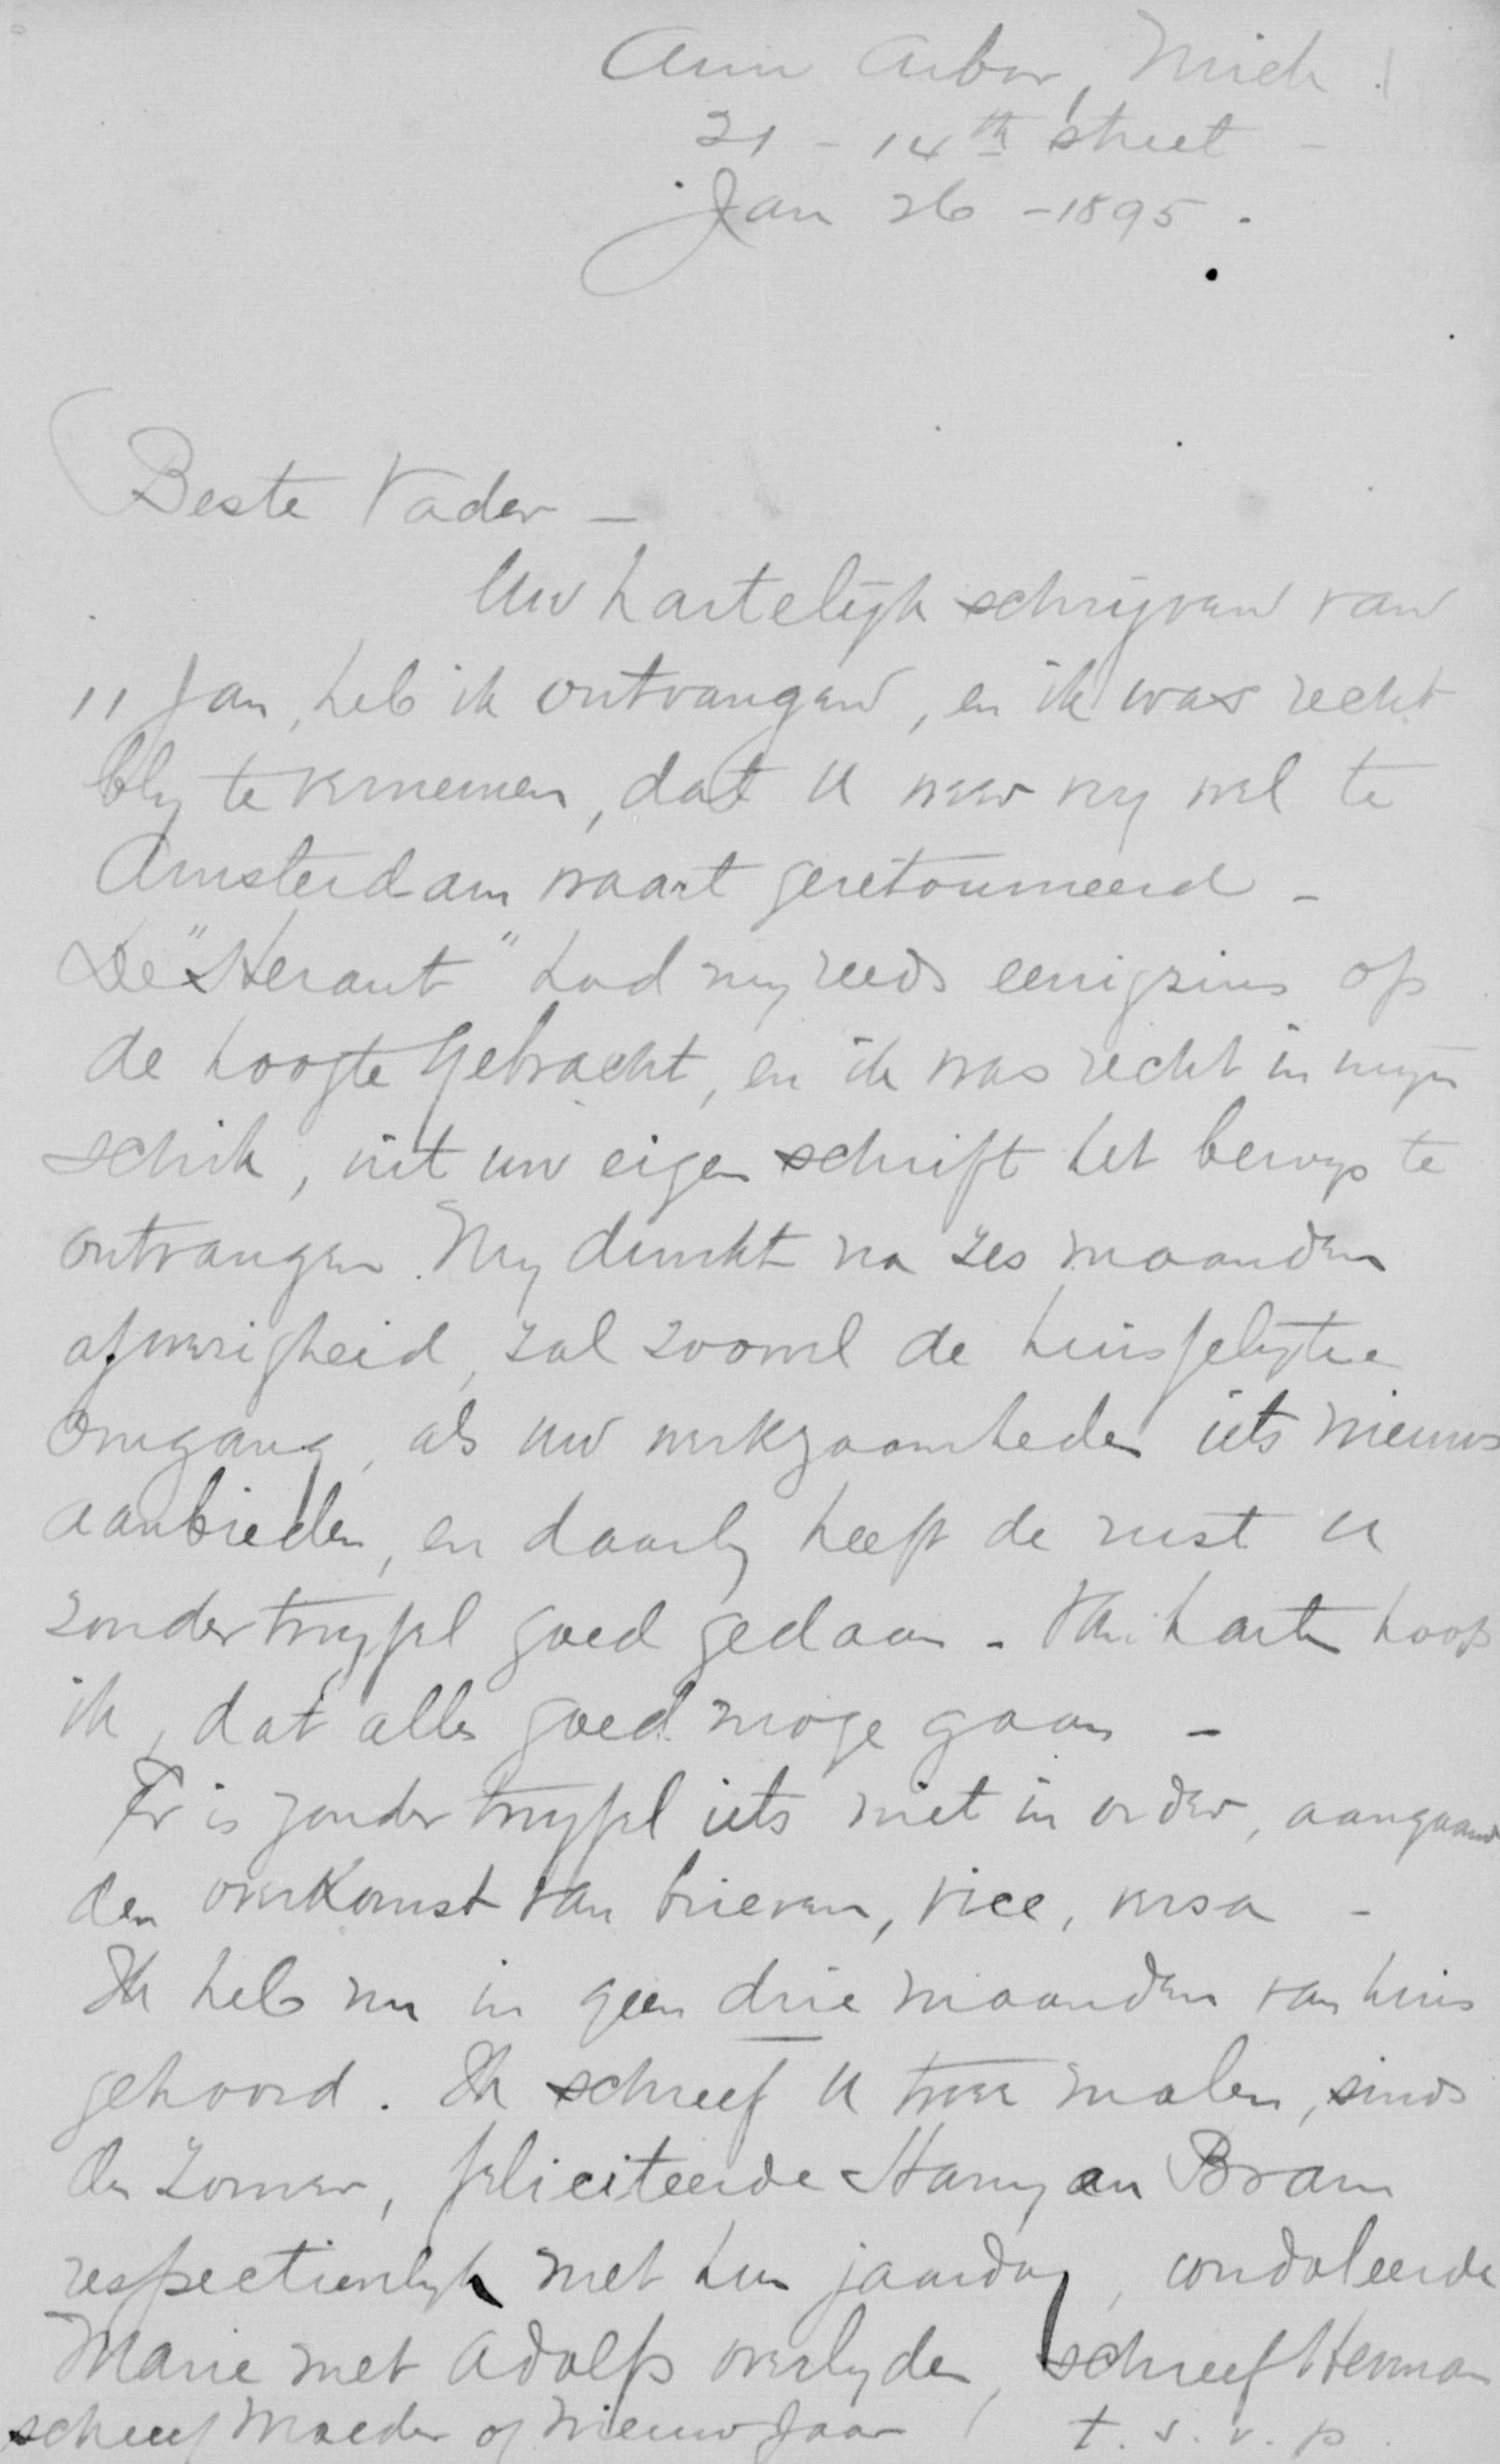 Ann Arbor, Mich.
21 - 14th street -
Jan 26 - 1895.
Beste Vader -
Uw hartelijk schrijven van
11 Jan, heb ik ontvangen, en ik was recht
bly te vernemen, dat u weer vry wel te
Amsterdam waart geretourneerd -
De "Heraut" had my reeds eenigzins op
de hoogte gebracht, en ik was recht in mijn
schik, uit uw eigen schrift het bewys te
ontvangen. My dunkt na zes maanden
afwezigheid, zal zoowel de huisselijke
omgang, als uw werkzaamheden iets nieuws
aanbieden, en daarby heeft de rust u
zonder twyfel goed gedaan - Van harte hoop
ik, dat alles goed moge gaan -
Er is zonder twyfel iets niet in order, aangaande
den overkomst van brieven, vice, versa -
Ik heb nu in geen drie maanden van huis
gehoord. Ik schreef u twee malen, sinds
den zomer, feliciteerde Harry en Bram
respectievelyk met hun jaardag, condoleerde
Marie met Adolfs overlyden, schreef Herman
schreef Moeder op Nieuw Jaar t. s. v. p.